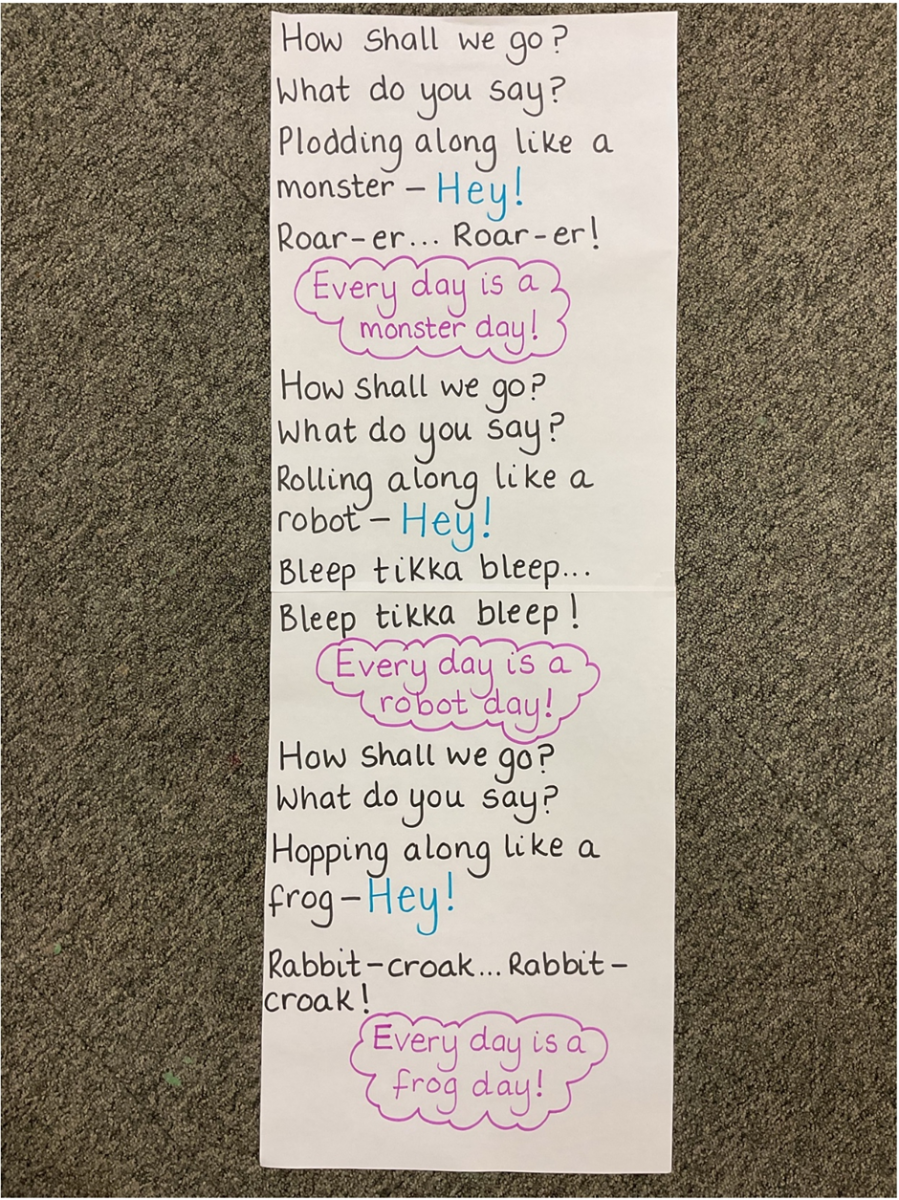 How shall we go?
What do you say?
Plodding along like a
monster – Hey!
Roar-er... Roar-er!
Every day is a
monster day!
How shall we go?
What do you say?
Rolling along like a
robot – Hey!
Bleep tikka bleep...
Bleep tikka bleep!
Every day is a
robot day!
How shall we go?
What do you say?
Hopping along like a
frog – Hey!
Rabbit-croak... Rabbit-
croak!
Every day is a
frog day!